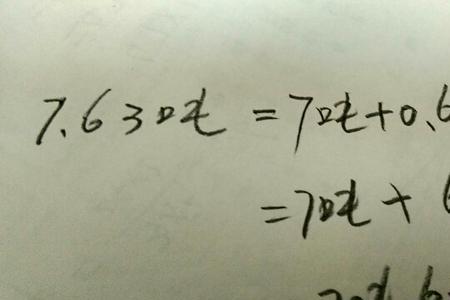 7.63吨=7吨+0.6
=7吨+